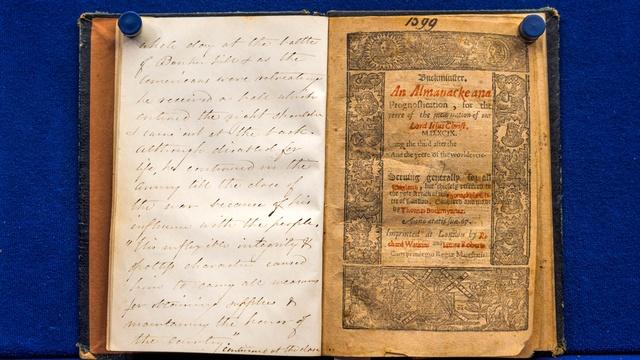 whole day at the battle
of Bunker Hill & as the
Americans were retreating
he received a ball which
entered the right shoulder
& came out at the back.
although disabled for
life, he continued in the
army till the close of
the war because of his
influence with the people.
"His inflexible integrity &
spotless character caused
him to carry all measures
for obtaining supplies &
maintaining the honor of
the country."
continued at the close
1599
Buckminster.
An Almanacke and
Prognostication, for the
yeere of the incarnation of our
Lord Iesus Christ.
M.D.XCIX.
ing the third after the
And the yeere of the worldes
Seruing generally for all
England, but chiefely
of London,
by Thomas Buckmynster.
Anno ætatis suæ
Imprinted at London by Ri-
chard Watkins and Iames Roberts.
Cum priuilegio Regiæ Maiestatis.